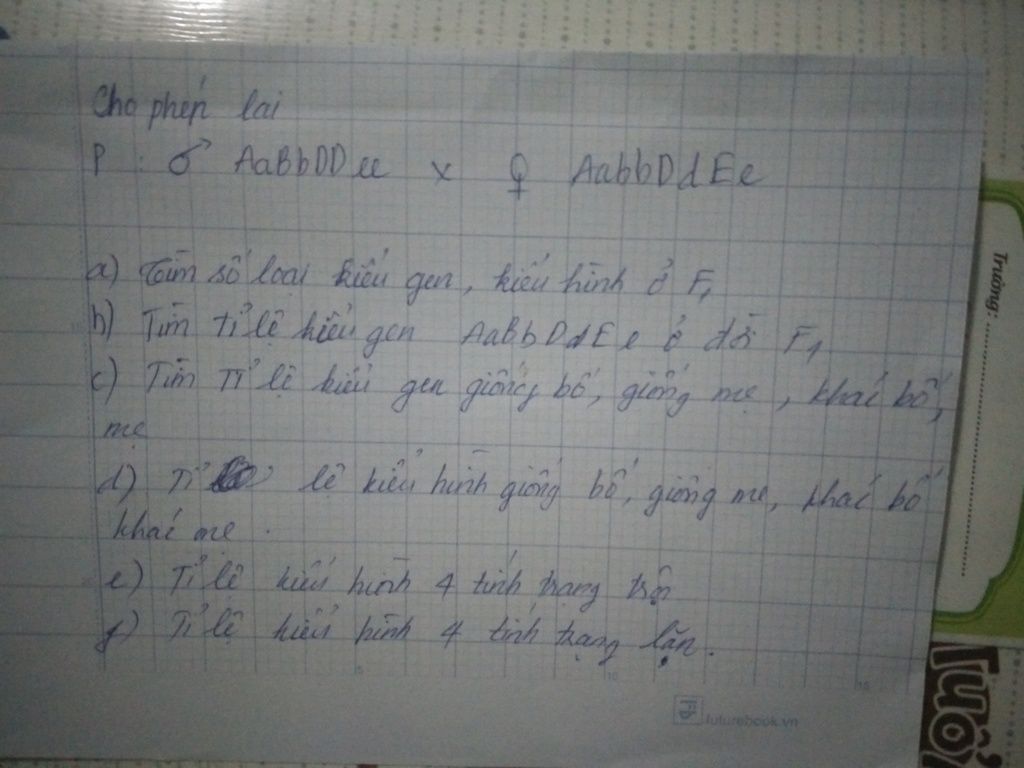 Cho phép lai
P : ♂ AaBbDDee x ♀ AabbDdEe
a) Tìm số loại kiểu gen, kiểu hình ở F1
b) Tìm tỉ lệ kiểu gen AaBbDdEe ở đời F1
c) Tìm Tỉ lệ kiểu gen giống bố, giống mẹ, khác bố,
mẹ
d) Tỉ lệ kiểu hình giống bố, giống mẹ, khác bố
khác mẹ.
e) Tỉ lệ kiểu hình 4 tính trạng trội
f) Tỉ lệ kiểu hình 4 tính trạng lặn.
5 10 15
futurebook.vn
Trường:
TUỔI